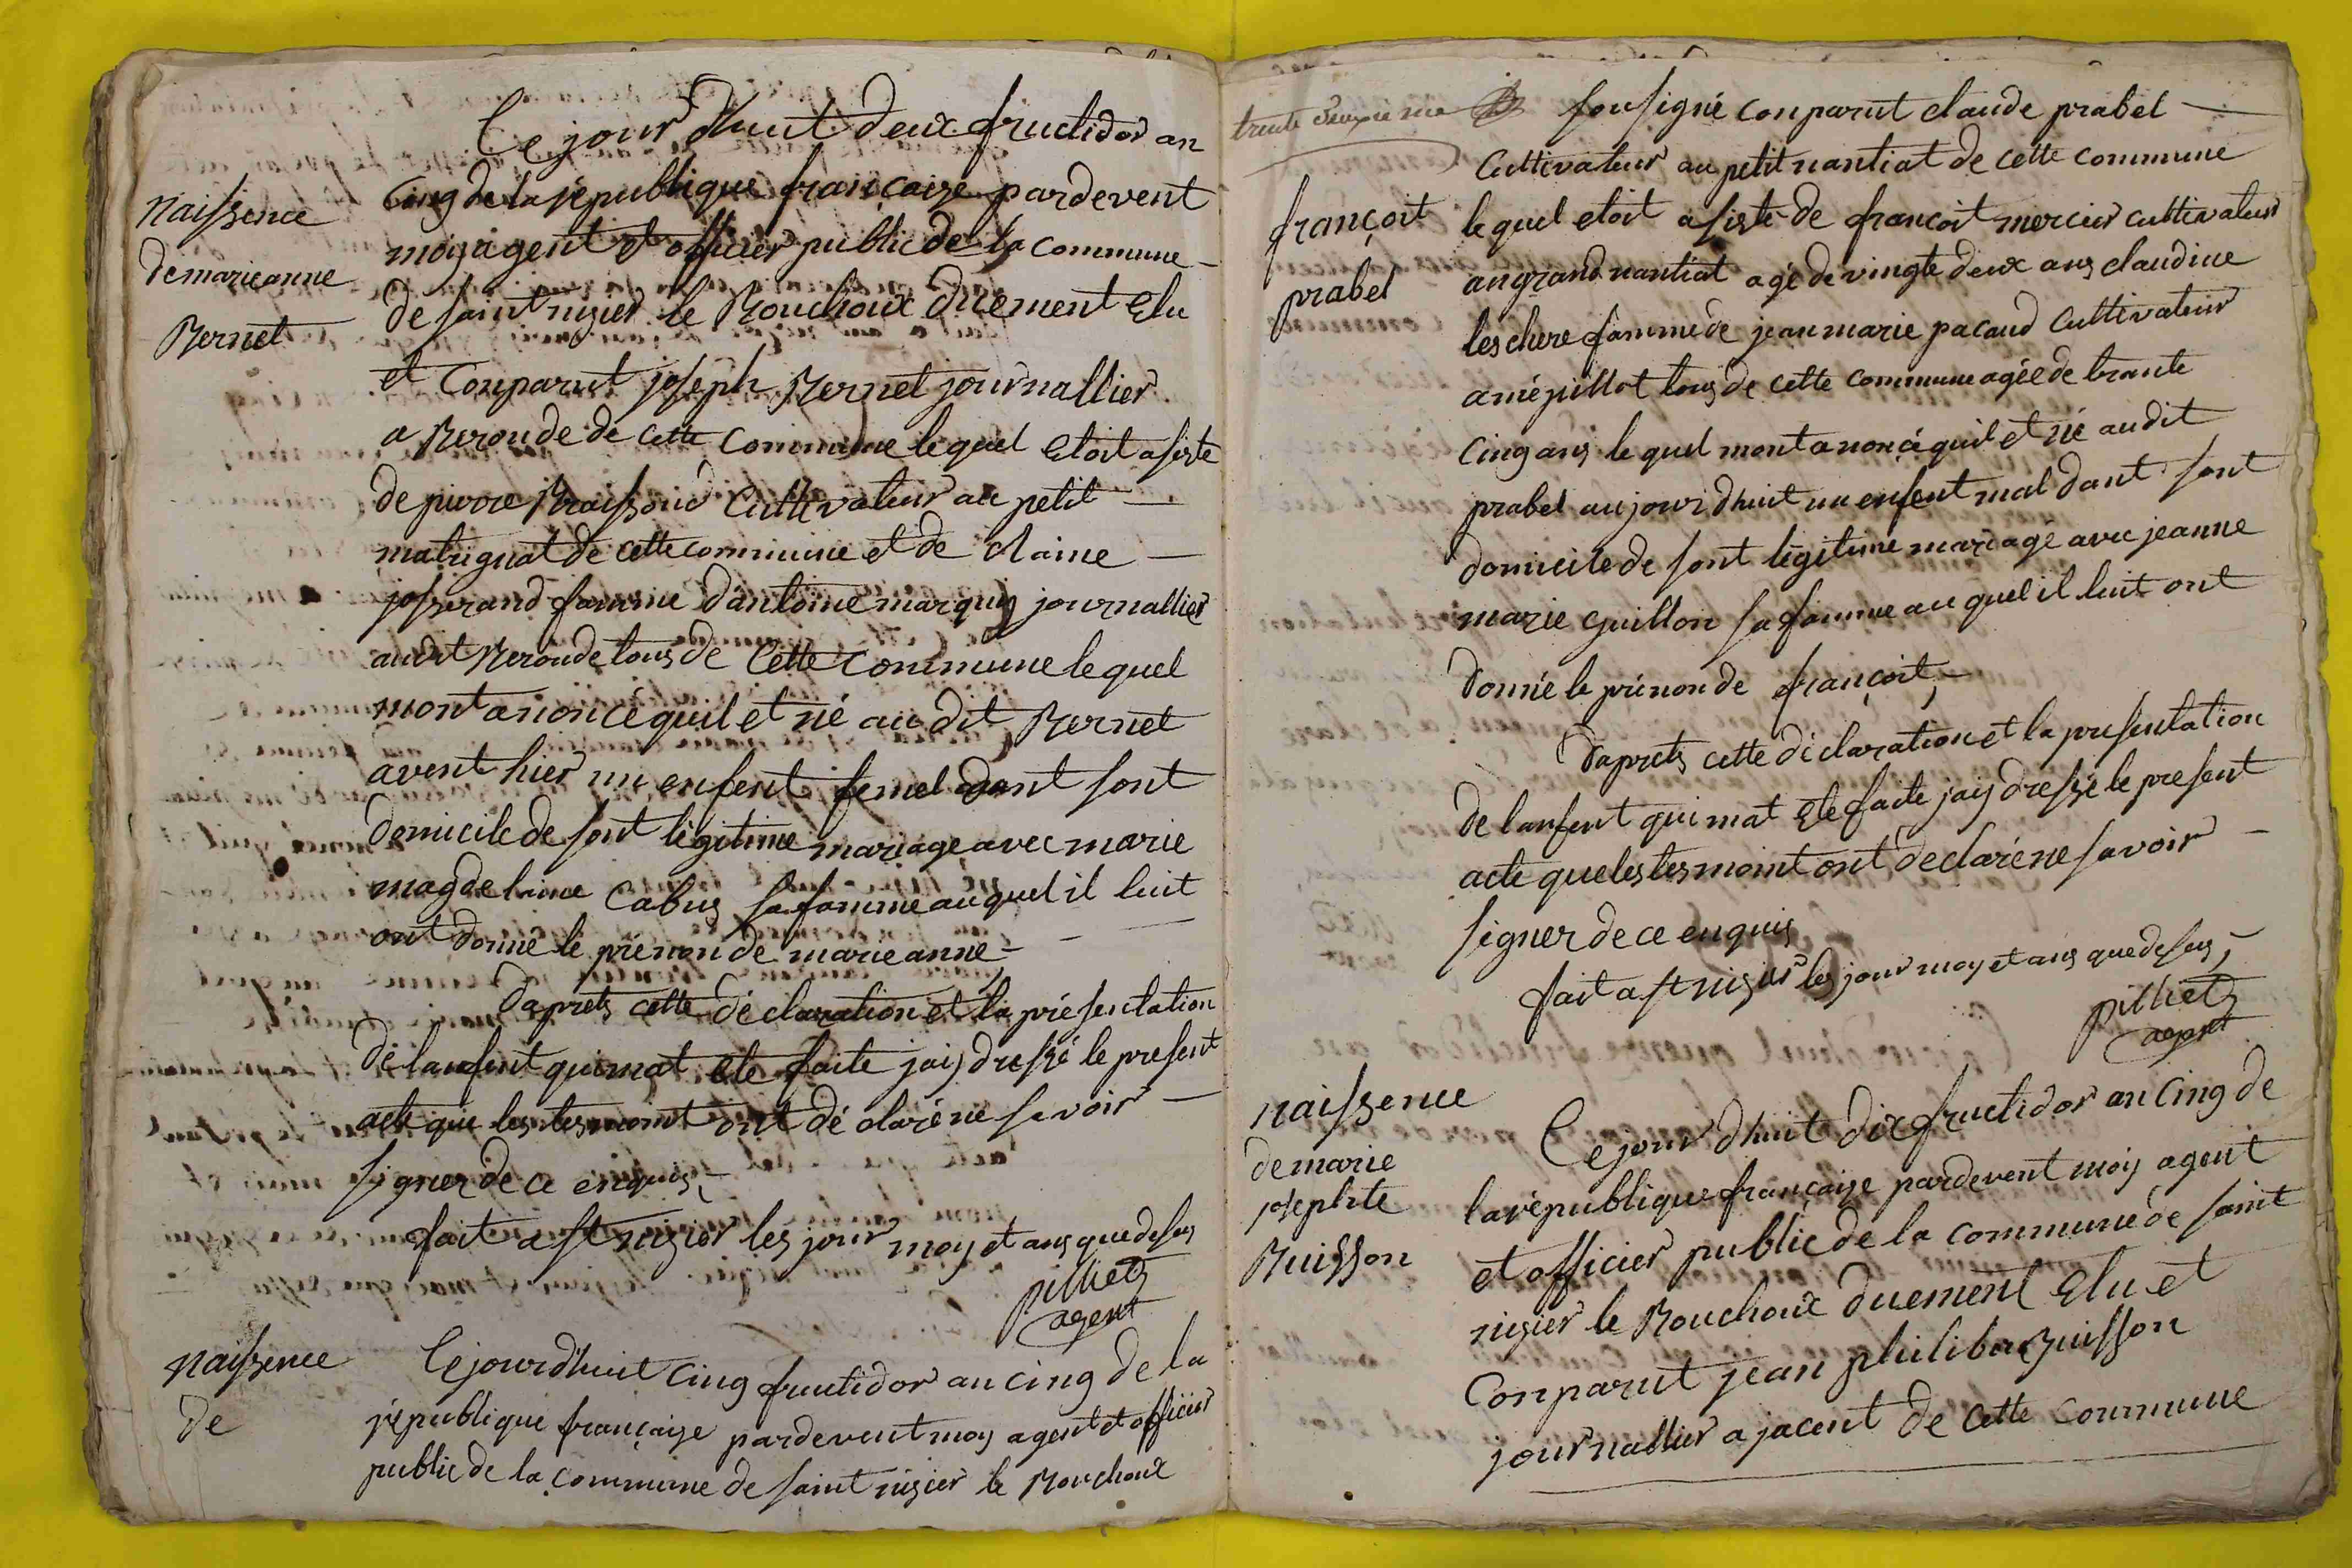 Ce jour dhuit deux fructidor an
Cinq de la république françaize pardevent
moy agent et officier public de la commune
de saint nizier le Bouchoux duement Elu
et Conparut joseph Bernet journallier
a Beronde de cette commune lequel Etoit asiste
de pierre Braissoud Cultivateur au petit
matrignat de cette commune et de claine
josserand famme dantoine marquis journallier
audit Beronde tous de Cette commune lequel
mont anoncé quil et né au dit Bernet
avent hier un enfent femel dant sont
domicile de sont légitime mariage avec marie
magdelaine Cabus sa famme au quel il luit
ont donné le prénon de marie anne
Daprets cette déclaration et la présentation
de lanfent qui mat ete faite jaij dressé le présent
acte que les tesmoint ont déclaré ne savoir
signer de ce enquis
fait a st nizier les jour moy et ans que desus
pilliet
agent
naissence
de marie anne
Bernet
naissence
de
Ce jourdhuit Cinq fructidor an cinq de la
république françaize pardevent moy agent et officier
public de la commune de saint nizier le Bouchoux
trente deuxieme
sousigné conparut claude prabel
Cultivateur au petit nantiat de cette commune
le quel etoit asiste de françoit mercier cultivateur
au grand nantiat agé de vingte deux ans claudine
leschere famme de jean marie pacaud Cultivateur
a mépillot tous de cette commune agée de trante
Cinq ans le quel mont anoncé quil et né au dit
prabel aujourdhuit un enfent mal dant sont
domicile de sont légitime mariage avec jeanne
marie guillon sa famme au quel il luit ont
donné le prénon de françoit
Daprets cette déclaration et la présentation
de lanfent qui mat ete faite jaij dressé le present
acte que les tesmoint ont déclaré ne savoir
signer de ce enquis
fait a st nizier les jour moy et ans que desus
pilliet
agent
françoit
prabel
naissence
de marie
josephte
Buisson
Ce jour dhuit dix fructidor an Cinq de
la république françaize pardevent moy agent
et officier public de la commune de saint
nizier le Bouchoux duement Elu et
Conparut jean philiber Buisson
journallier a jacent de cette commune